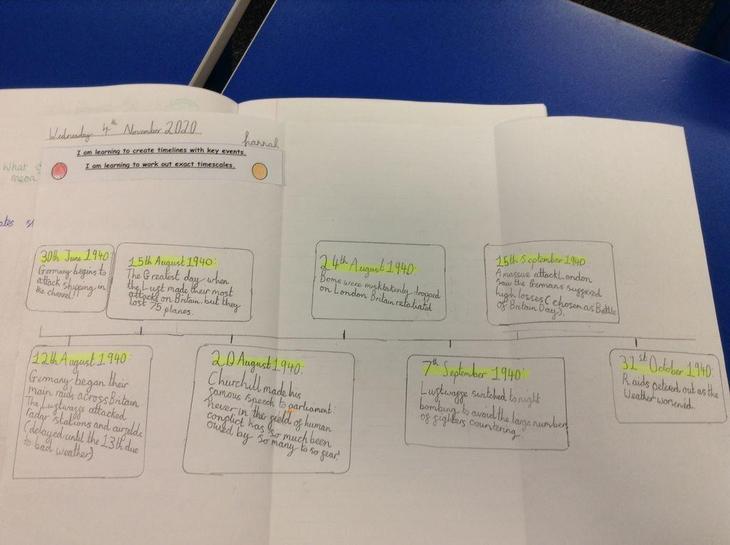 Wednesday 4th November 2020
hannah
I am learning to create timelines with key events.
I am learning to work out exact timescales.
What
mean
30th June 1940:
Germany begins to
attack shipping in
the channel
15th August 1940:
The Greatest day when
the Lust made their most
attacks on Britain. but they
lost 75 planes.
24th August 1940:
Bombs were mistakenly dropped
on London Britain retaliated
15th September 1940
A massive attack London
saw the Germans suffered
high losses (chosen as Battle
of Britain Day).
12th August 1940:
Germany began their
main raids across Britain
The Lustwaffe attacked
radar stations and airfields
(delayed until the 13th due
to bad weather)
20 August 1940:
Churchill made his
famous speech to parliament
'never in the field of human
conflict has so much been
owed by so many to so few'
7th September 1940:
Lustwaffe switched to night
bombing to avoid the large numbers
of fighters countering
31st October 1940:
Raids petered out as the
Weather worsened.